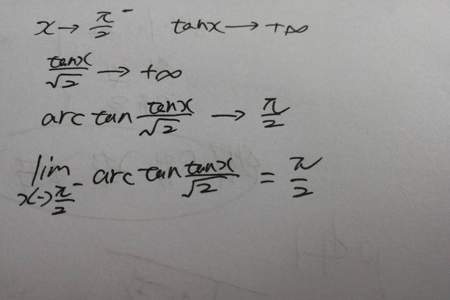 x → π/2⁻ tanx → +∞
tanx/√2 → +∞
arctan tanx/√2 → π/2
lim x→π/2⁻ arctan tanx/√2 = π/2